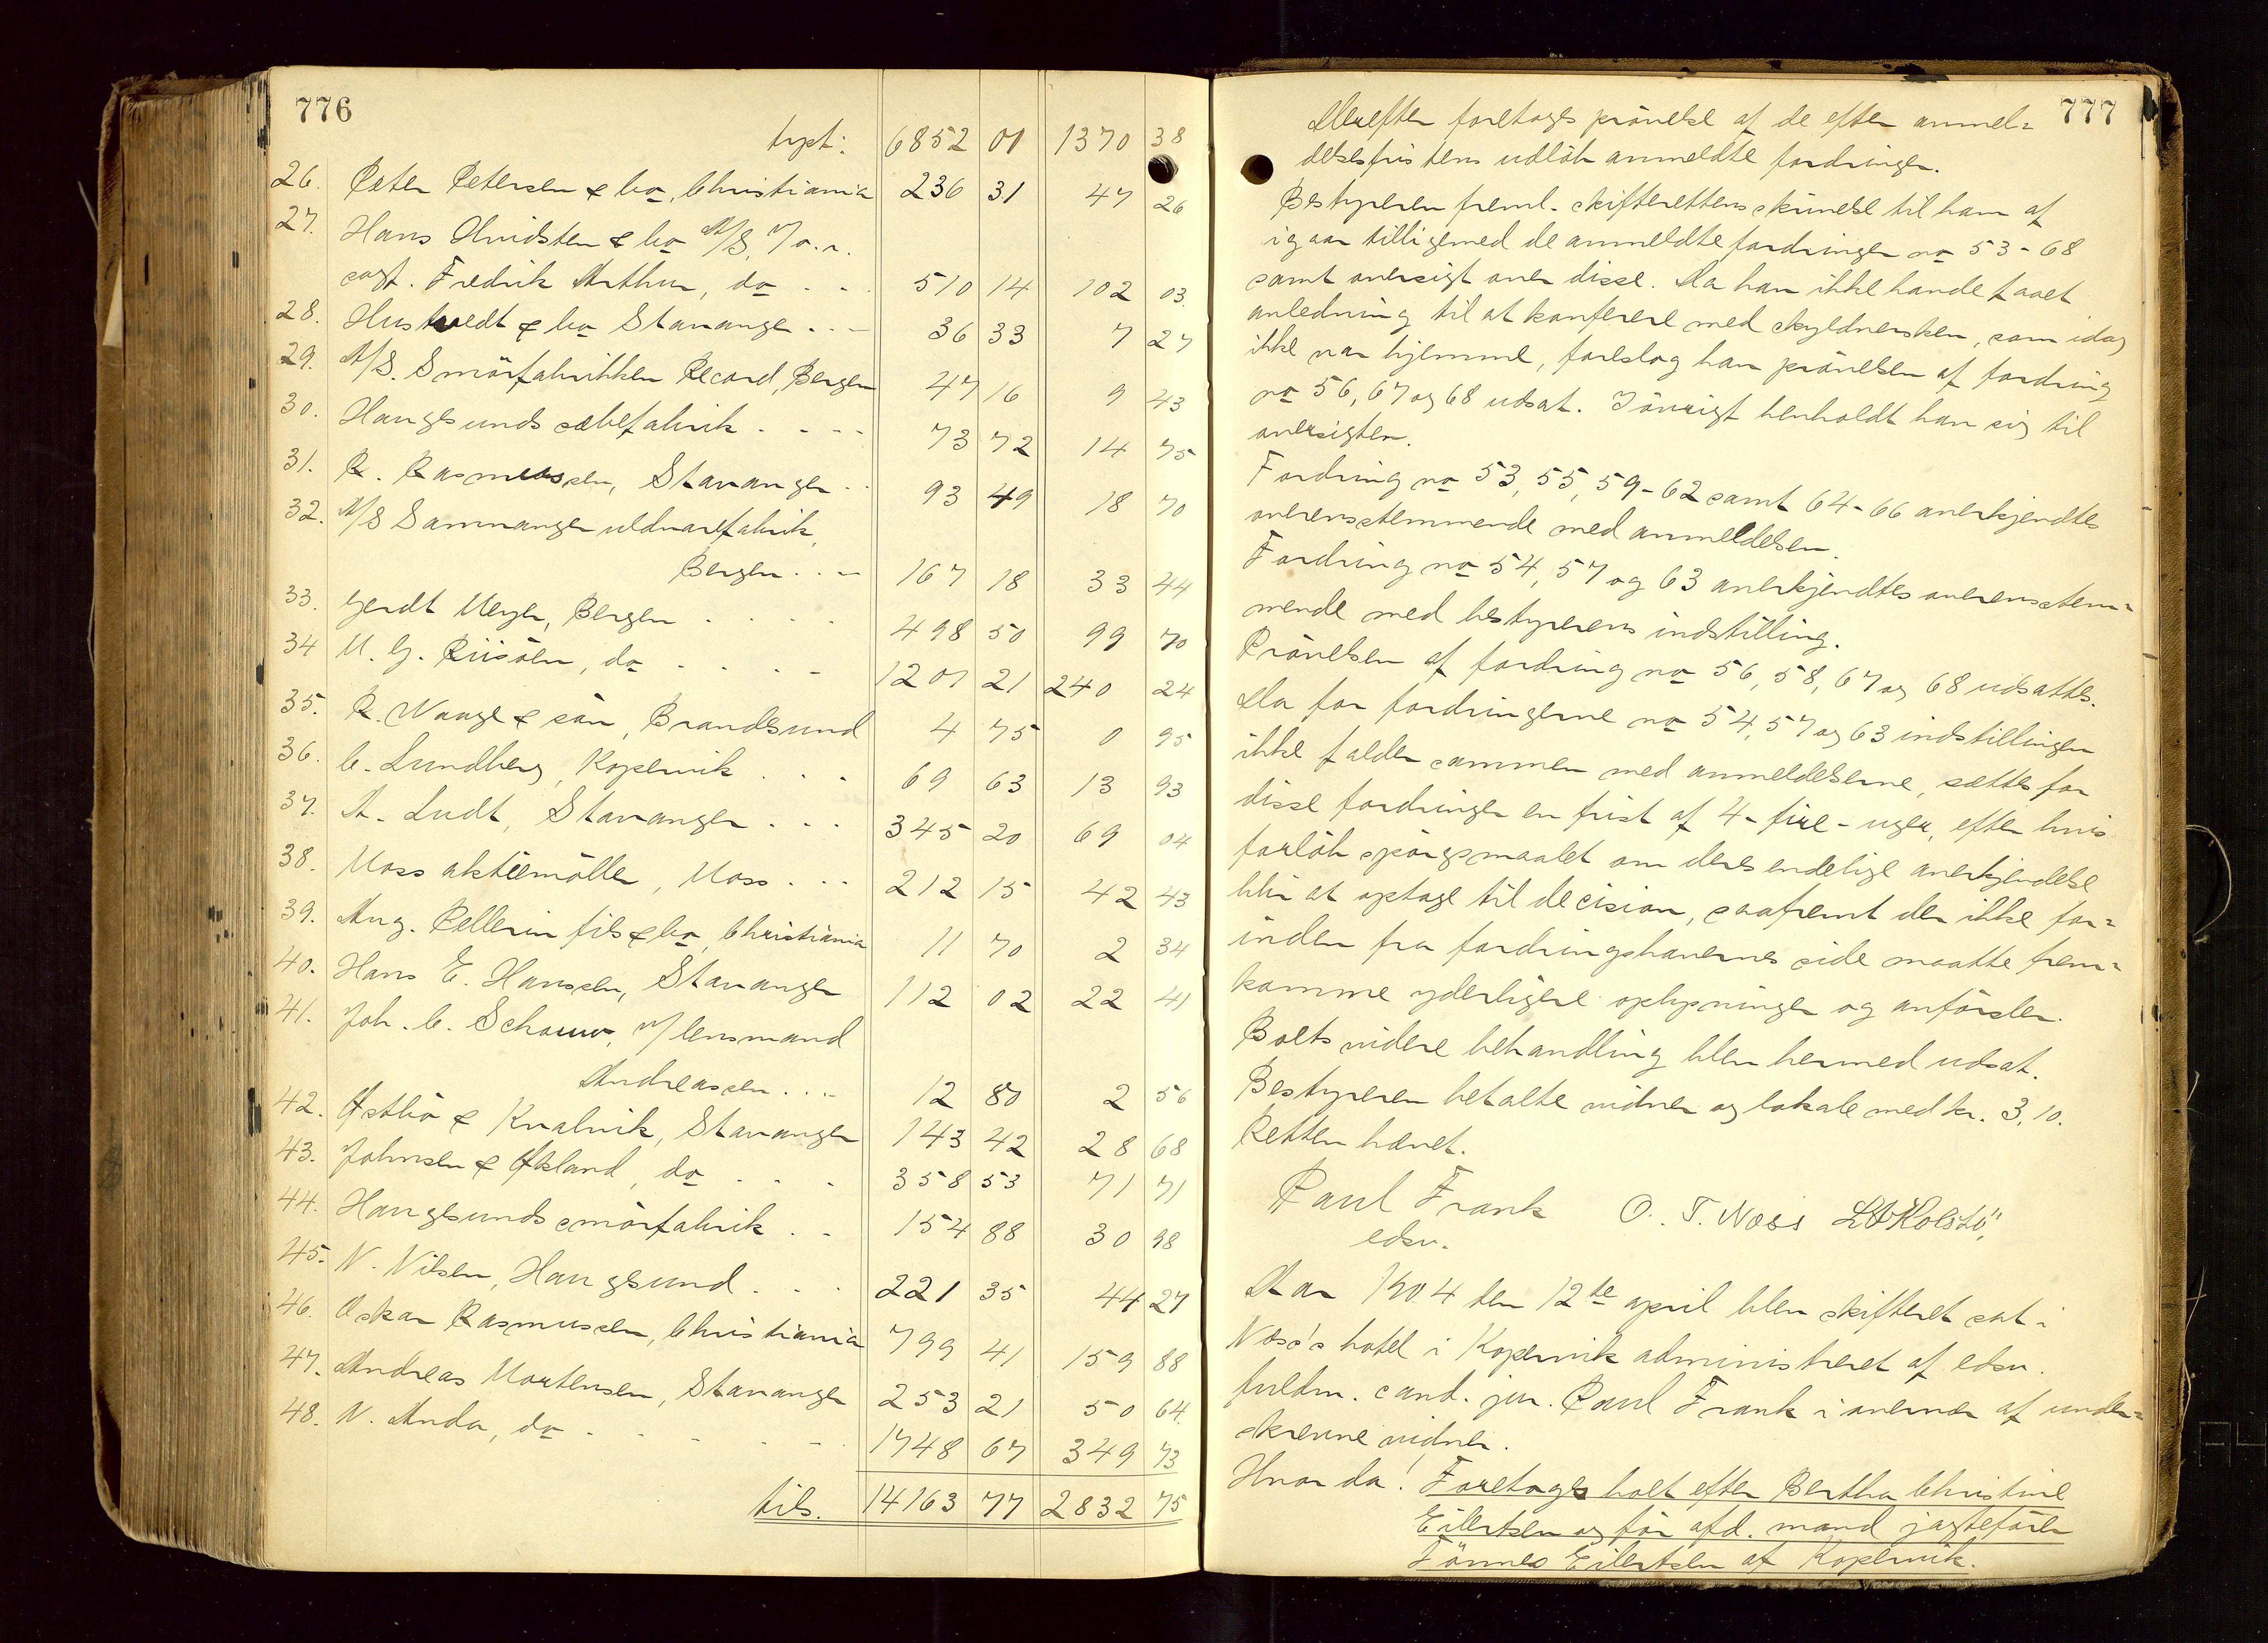 776
trpt: 6852 01 1370 38
26. Peter Petersen & Co, Christiania 236 31 47 26
27. Hans Qvidsten & Co A/S, v/ o.r.
sagf. Fredrik Arthur, do . . . 510 14 102 03.
28. Hustvedt & Co Stavanger . . . 36 33 7 27
29. A/S. Smörfabrikken Record, Bergen 47 16 9 43
30. Haugesunds sæbefabrik . . . . 73 72 14 75
31. R. Rasmussen, Stavanger . . 93 49 18 70
32. A/S Samnanger uldvarefabrik,
Bergen . . . 167 18 33 44
33. Gerdt Meyer, Bergen . . . . 498 50 99 70
34 M. G. Riisöen, do . . . . 1201 21 240 24
35. R. Waage & sön, Brandesund 4 75 0 95
36. C. Lundberg, Kopervik . . . 69 63 13 93
37. A. Ludt, Stavanger . . . 345 20 69 04
38. Moss aktiemölle, Moss . . . 212 15 42 43
39. Aug. Pellerin fils & Co, Christiania 11 70 2 34
40. Hans E. Hanssen, Stavanger 112 02 22 41
41. Joh. C. Schouw, v/ lensmand
Andreassen . . . 12 80 2 56
42. Östbö & Kvalvik, Stavanger 143 42 28 68
43. Johnsen & Öksland, do . . . 358 53 71 71
44. Haugesunds smörfabrik . . 154 88 30 98
45. N. Nilsen, Haugesund . . . 221 35 44 27
46. Oskar Rasmussen, Christiania 799 41 159 88
47. Andreas Mortensen, Stavanger 253 21 50 64.
48. N. Anda, do . . . . . 1748 67 349 73
tils. 14163 77 2832 75
777
Derefter foretoges prövelse af de efter anmel=
delsesfristens udlöb anmeldte fordringer.
Bestyreren freml. skifterettens skrivelse til ham af
igaar tilligemed de anmeldte fordringer no 53-68
samt oversigt over disse. Da han ikke havde faaet
anledning til at konferere med skyldnersken, som idag
ikke var hjemme, foreslog han prövelsen af fordring
no 56, 67 og 68 udsat. Iövrigt henholdt han sig til
oversigten.
Fordring no 53, 55, 59-62 samt 64-66 anerkjendtes
overensstemmende med anmeldelsen.
Fordring no 54, 57 og 63 anerkjendtes overensstem=
mende med bestyrerens indstilling.
Prövelsen af fordring no 56, 58, 67 og 68 udsattes.
Da for fordringerne no 54, 57 og 63 indstillingen
ikke falder sammen med anmeldelserne, sættes for
disse fordringer en frist af 4-fire-uger, efter hvis
forlöb spörgsmaalet om deres endelige anerkjendelse
blir at optage til decision, saafremt der ikke for=
inden fra fordringshavernes side maatte frem=
komme yderligere oplysninger og anförsler.
Boets videre behandling blev hermed udsat.
Bestyreren betalte vidner og lokale med kr. 3,10.
Retten hævet.
Paul Frank O. T. Næss L. Kolstö,
edsv.
Aar 1904 den 12te april blev skifteret sat i
Næss's hotel i Kopervik administreret af edsv.
fuldm. cand. jur. Paul Frank i overvær af under=
skrevne vidner.
Hvor da! Foretoges boet efter Bertha Christine
Eilertsen og för afd. mand jagtefører
Tönnes Eilertsen af Kopervik.